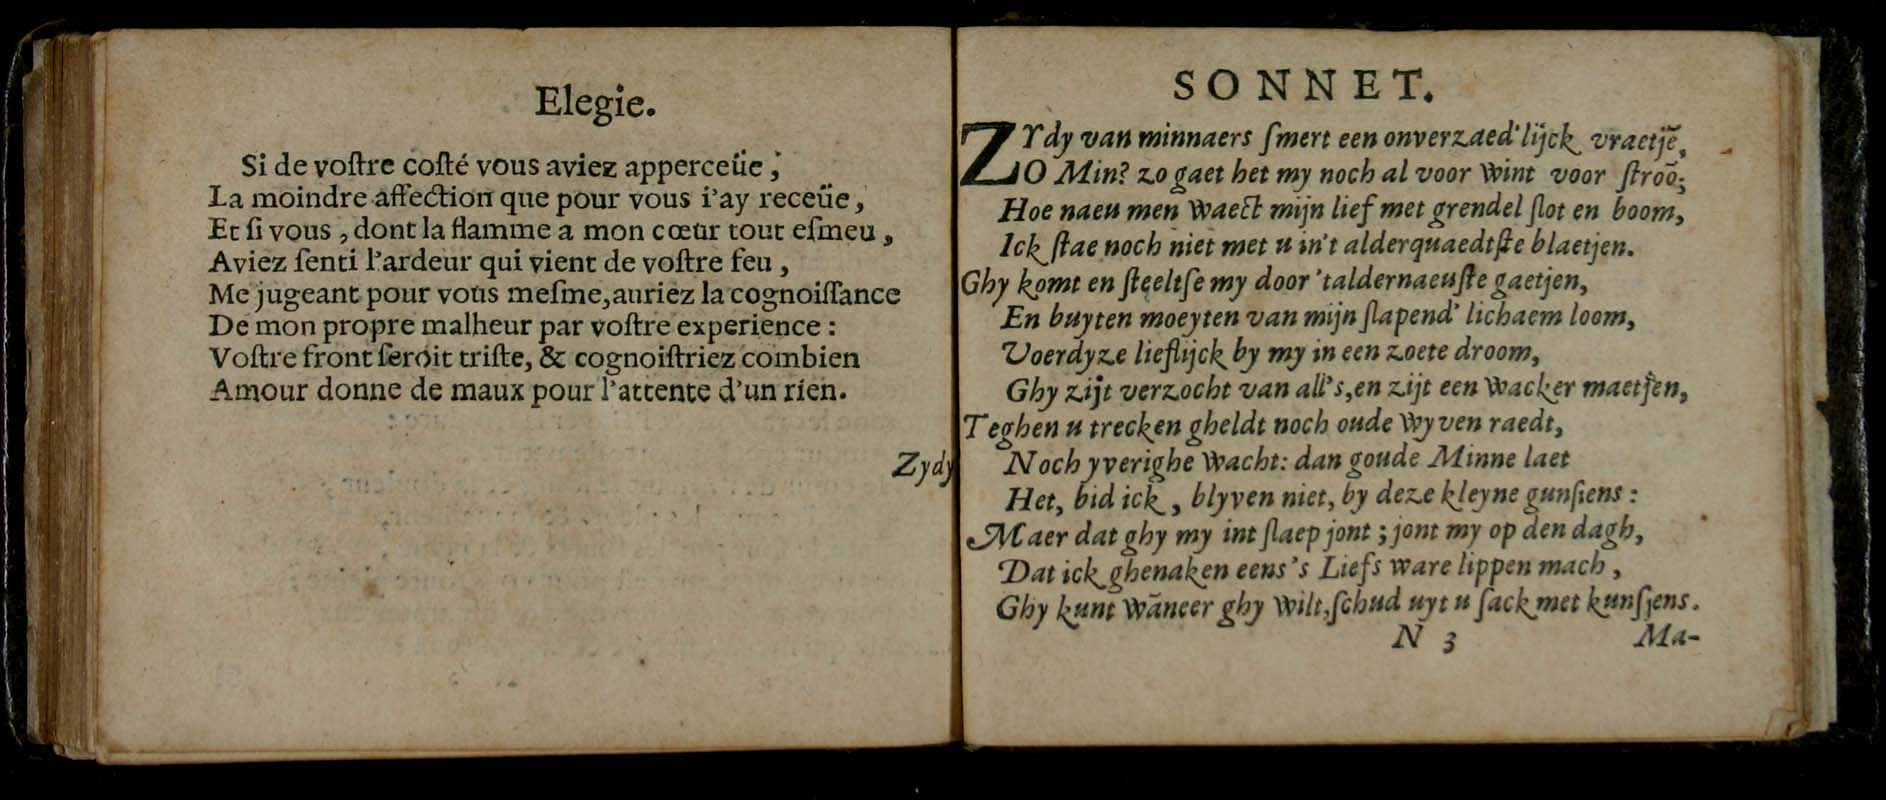 Elegie.
Si de voſtre coſté vous aviez apperceüe,
La moindre affection que pour vous i'ay receüe,
Et ſi vous, dont la flamme a mon cœur tout eſmeu,
Aviez ſenti l'ardeur qui vient de voſtre feu,
Me jugeant pour vous meſme, auriez la cognoiſſance
De mon propre malheur par voſtre experience:
Voſtre front ſeroit triſte, & cognoiſtriez combien
Amour donne de maux pour l'attente d'un rien.
Zydy
SONNET.
ZYdy van minnaers ſmert een onverzaed'lijck vraetjē,
O Min? zo gaet het my noch al voor wint voor ſtroō;
Hoe naeu men waect mijn lief met grendel ſlot en boom,
Ick ſtae noch niet met u in't alderquaedtſte blaetjen.
Ghy komt en ſteeltſe my door 'taldernaeuſte gaetjen,
En buyten moeyten van mijn ſlapend' lichaem loom,
Voerdyze lieflijck by my in een zoete droom,
Ghy zijt verzocht van all's, en zijt een wacker maetjen,
Teghen u trecken gheldt noch oude wyven raedt,
Noch yverighe wacht: dan goude Minne laet
Het, bid ick, blyven niet, by deze kleyne gunſiens:
Maer dat ghy my int ſlaep jont; jont my op den dagh,
Dat ick ghenaken eens's Liefs ware lippen mach,
Ghy kunt wāneer ghy wilt, ſchud uyt u ſack met kunſjens.
N 3 Ma-